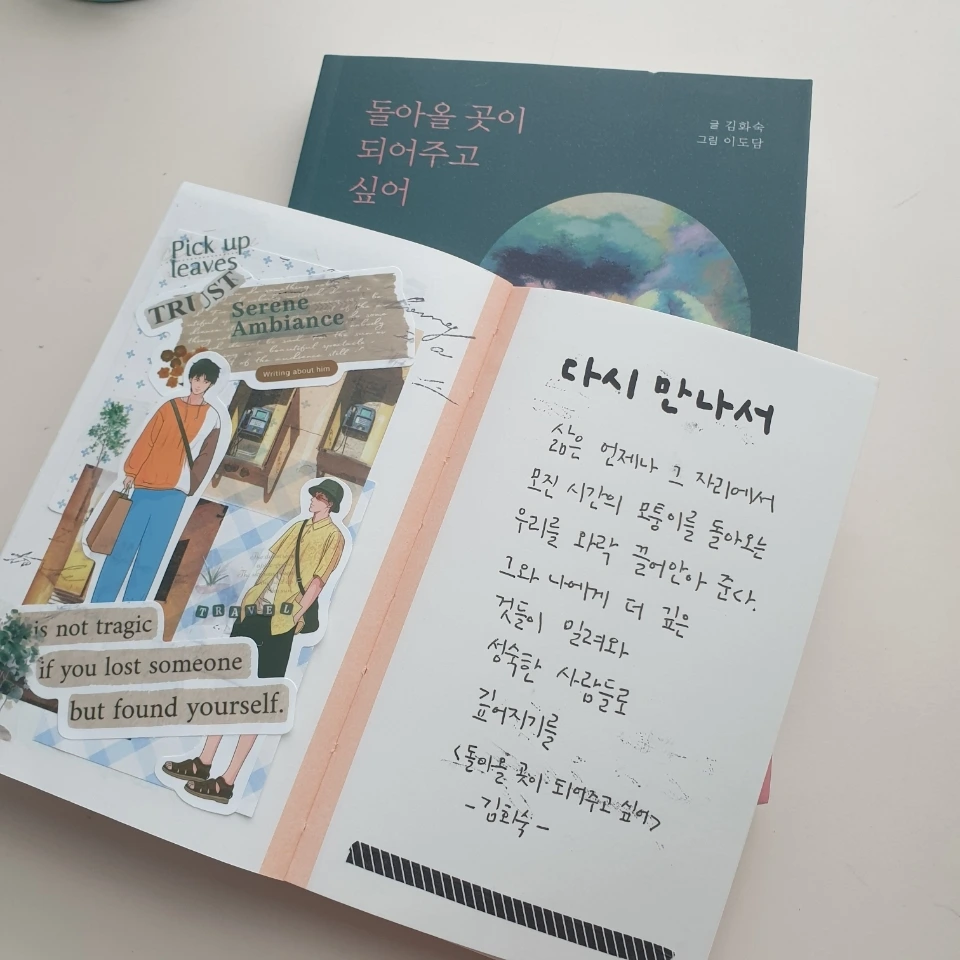 돌아올 곳이
되어주고
싶어
글 김화숙
그림 이도담
Pick up
leaves
TRUST
Serene
Ambiance
Writing about him
TRAVEL
is not tragic
if you lost someone
but found yourself.
다시 만나서
삶은 언제나 그 자리에서
모진 시간의 모퉁이를 돌아오는
우리를 와락 끌어안아 준다.
그와 나에게 더 깊은
것들이 밀려와
성숙한 사람들로
깊어지기를
<돌아올 곳이 되어주고 싶어>
-김화숙-